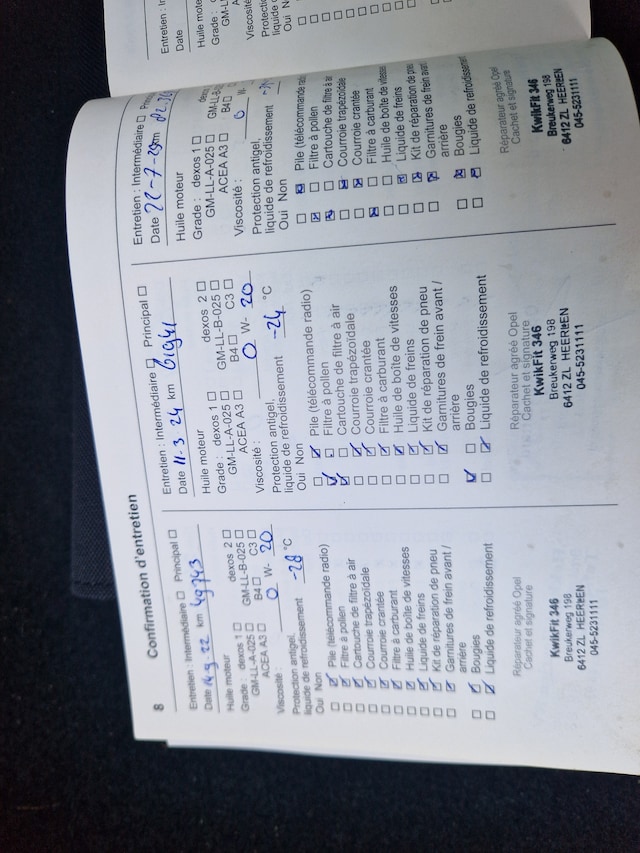 8
Confirmation d'entretien
Entretien : Intermédiaire Principal
Date 4-9-22 km 49743
Huile moteur
Grade : dexos 1 dexos 2
GM-LL-A-025 GM-LL-B-025
ACEA A3 B4 C3
Viscosité : 0 W- 20
Protection antigel,
liquide de refroidissement -28 °C
Oui Non
Pile (télécommande radio)
Filtre à pollen
Cartouche de filtre à air
Courroie trapézoïdale
Courroie crantée
Filtre à carburant
Huile de boîte de vitesses
Liquide de freins
Kit de réparation de pneu
Garnitures de frein avant /
arrière
Bougies
Liquide de refroidissement
Réparateur agréé Opel
Cachet et signature
KwikFit 346
Breukerweg 198
6412 ZL HEERLEN
045-5231111
Entretien : Intermédiaire Principal
Date 11-3 24 km 61941
Huile moteur
Grade : dexos 1 dexos 2
GM-LL-A-025 GM-LL-B-025
ACEA A3 B4 C3
Viscosité : 0 W- 20
Protection antigel,
liquide de refroidissement -24 °C
Oui Non
Pile (télécommande radio)
Filtre à pollen
Cartouche de filtre à air
Courroie trapézoïdale
Courroie crantée
Filtre à carburant
Huile de boîte de vitesses
Liquide de freins
Kit de réparation de pneu
Garnitures de frein avant /
arrière
Bougies
Liquide de refroidissement
Réparateur agréé Opel
Cachet et signature
KwikFit 346
Breukerweg 198
6412 ZL HEERLEN
045-5231111
Entretien : Intermédiaire
Date 22-7-29 km
Huile moteur
Grade : dexos 1
GM-LL-A-025
ACEA A3 B4
Viscosité : 0 W-
Protection antigel,
liquide de refroidissement
Oui Non
Pile (télécommande
Filtre à pollen
Cartouche de filtre à air
Courroie trapézoïdale
Courroie crantée
Filtre à carburant
Huile de boîte de vitesses
Liquide de freins
Kit de réparation de pneu
Garnitures de frein avant
arrière
Bougies
Liquide de refroidissement
Réparateur agréé Opel
Cachet et signature
KwikFit 346
Breukerweg 198
6412 ZL HEERLEN
045-5231111
Date
Huile
Grade :
Viscosité
Oui